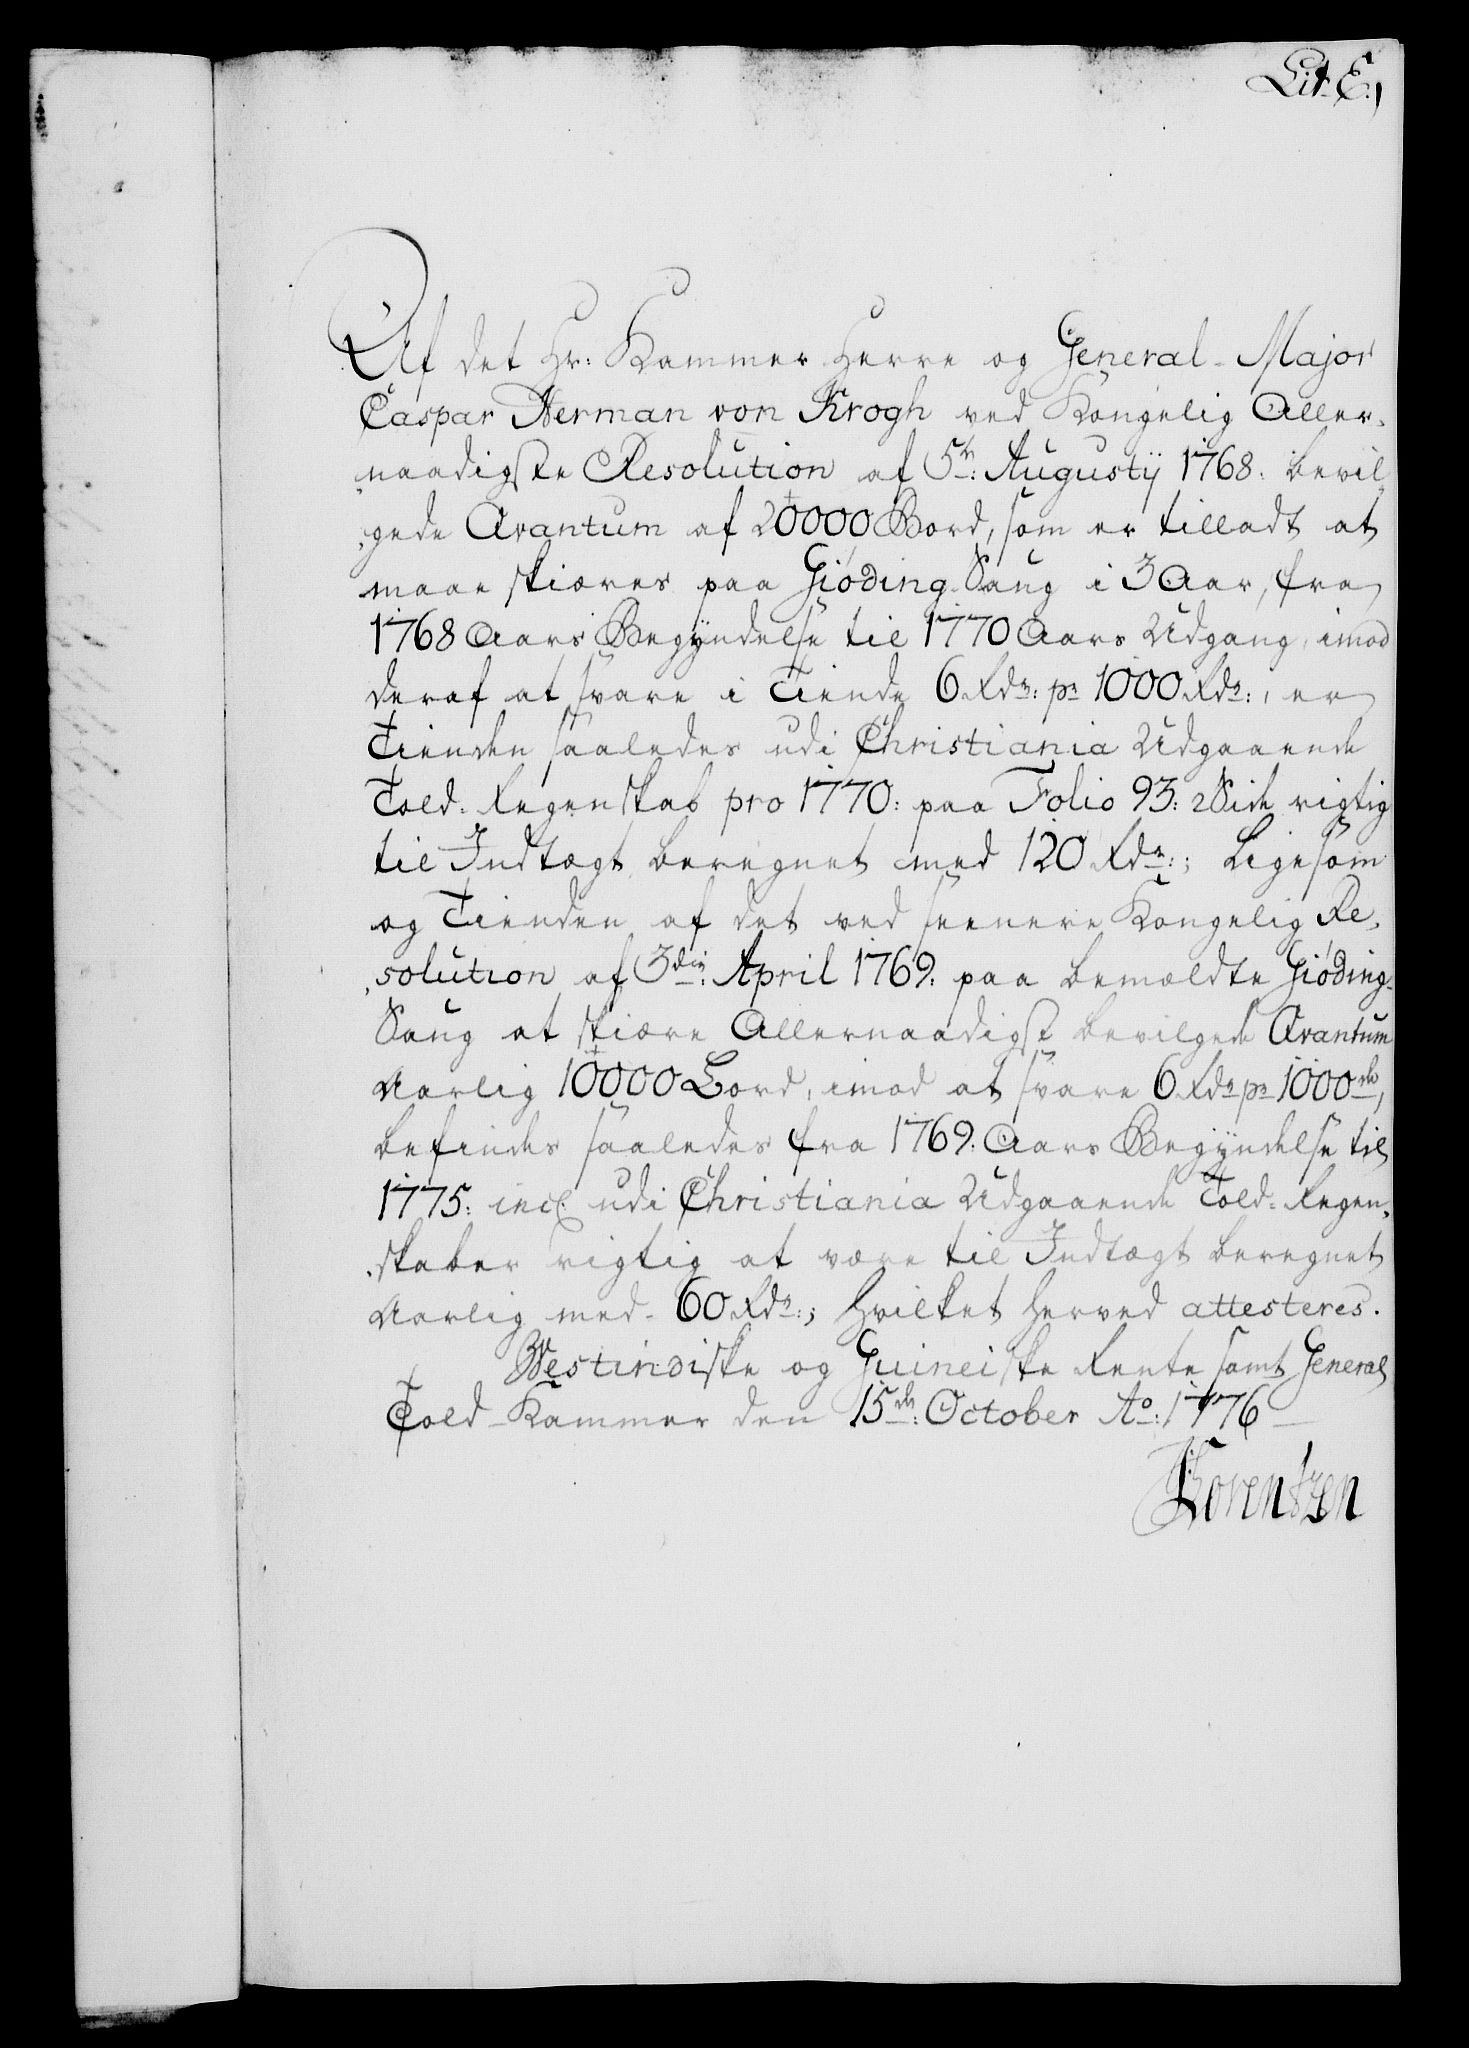 Lit. E.,
Af det Hr: Kammer Herre og General-Major
Caspar Herman von Krogh ved Kongelig Aller-
naadigste Resolution af 5te: Augustij 1768. bevil-
gede Qvantum af 20000 Bord, som er tilladt at
maae skiæres paa Giøding-Saug i 3 Aar, fra
1768 Aars Begyndelse til 1770 Aars Udgang, imod
deraf at svare i Tiende 6 Rdr: pr 1000 Rdr:, er
Tienden saaledes udi Christiania Udgaaende
Told-Regenskab pro 1770: paa Folio 93: 2 Side rigtig
til Indtægt beregnet med 120 Rdr:; Ligesom
og Tienden af det ved seenere Kongelig Re-
solution af 3die: April 1769. paa bemældte Giøding-
Saug at skiære Allernaadigst bevilgede Qvantum
Aarlig 10000 Bord, imod at svare 6 Rdr pr 1000de,
befindes saaledes fra 1769. Aars Begyndelse til
1775: incl. udi Christiania Udgaaende Told-Regen-
skaber rigtig at være til Indtægt beregnet
Aarlig med 60 Rdr:; Hvilket herved attesteres.
Westindiske og Guineiske Rente samt General
Told-Kammer den 15de: October Ao: 1776
Lorentzen